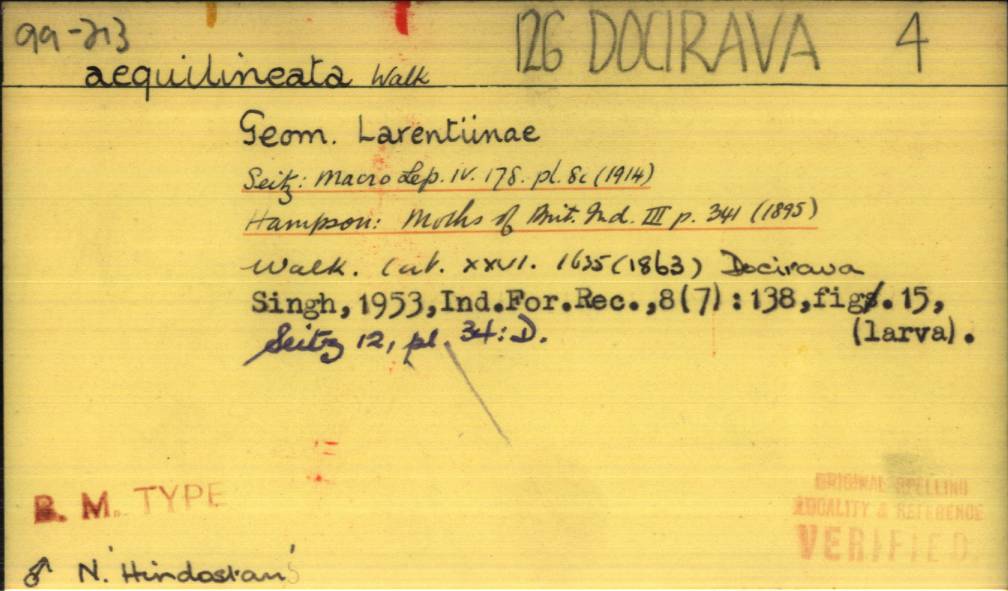 99-213
126 DOCIRAVA 4
aequilineata Walk
Geom. Larentiinae
Seitz: Macro Lep. IV. 178. pl. 8c (1914)
Hampson: Moths of Brit. Ind. III p. 341 (1895)
Walk. Cat. XXVI. 1655 (1863) Docirava
Singh, 1953, Ind.For.Rec., 8(7): 138, figs. 15,
(larva).
Seitz 12, pl. 34: D.
B. M. TYPE
ORIGINAL SPELLING
LOCALITY & REFERENCE
VERIFIED.
♂ N. 'Hindostan'